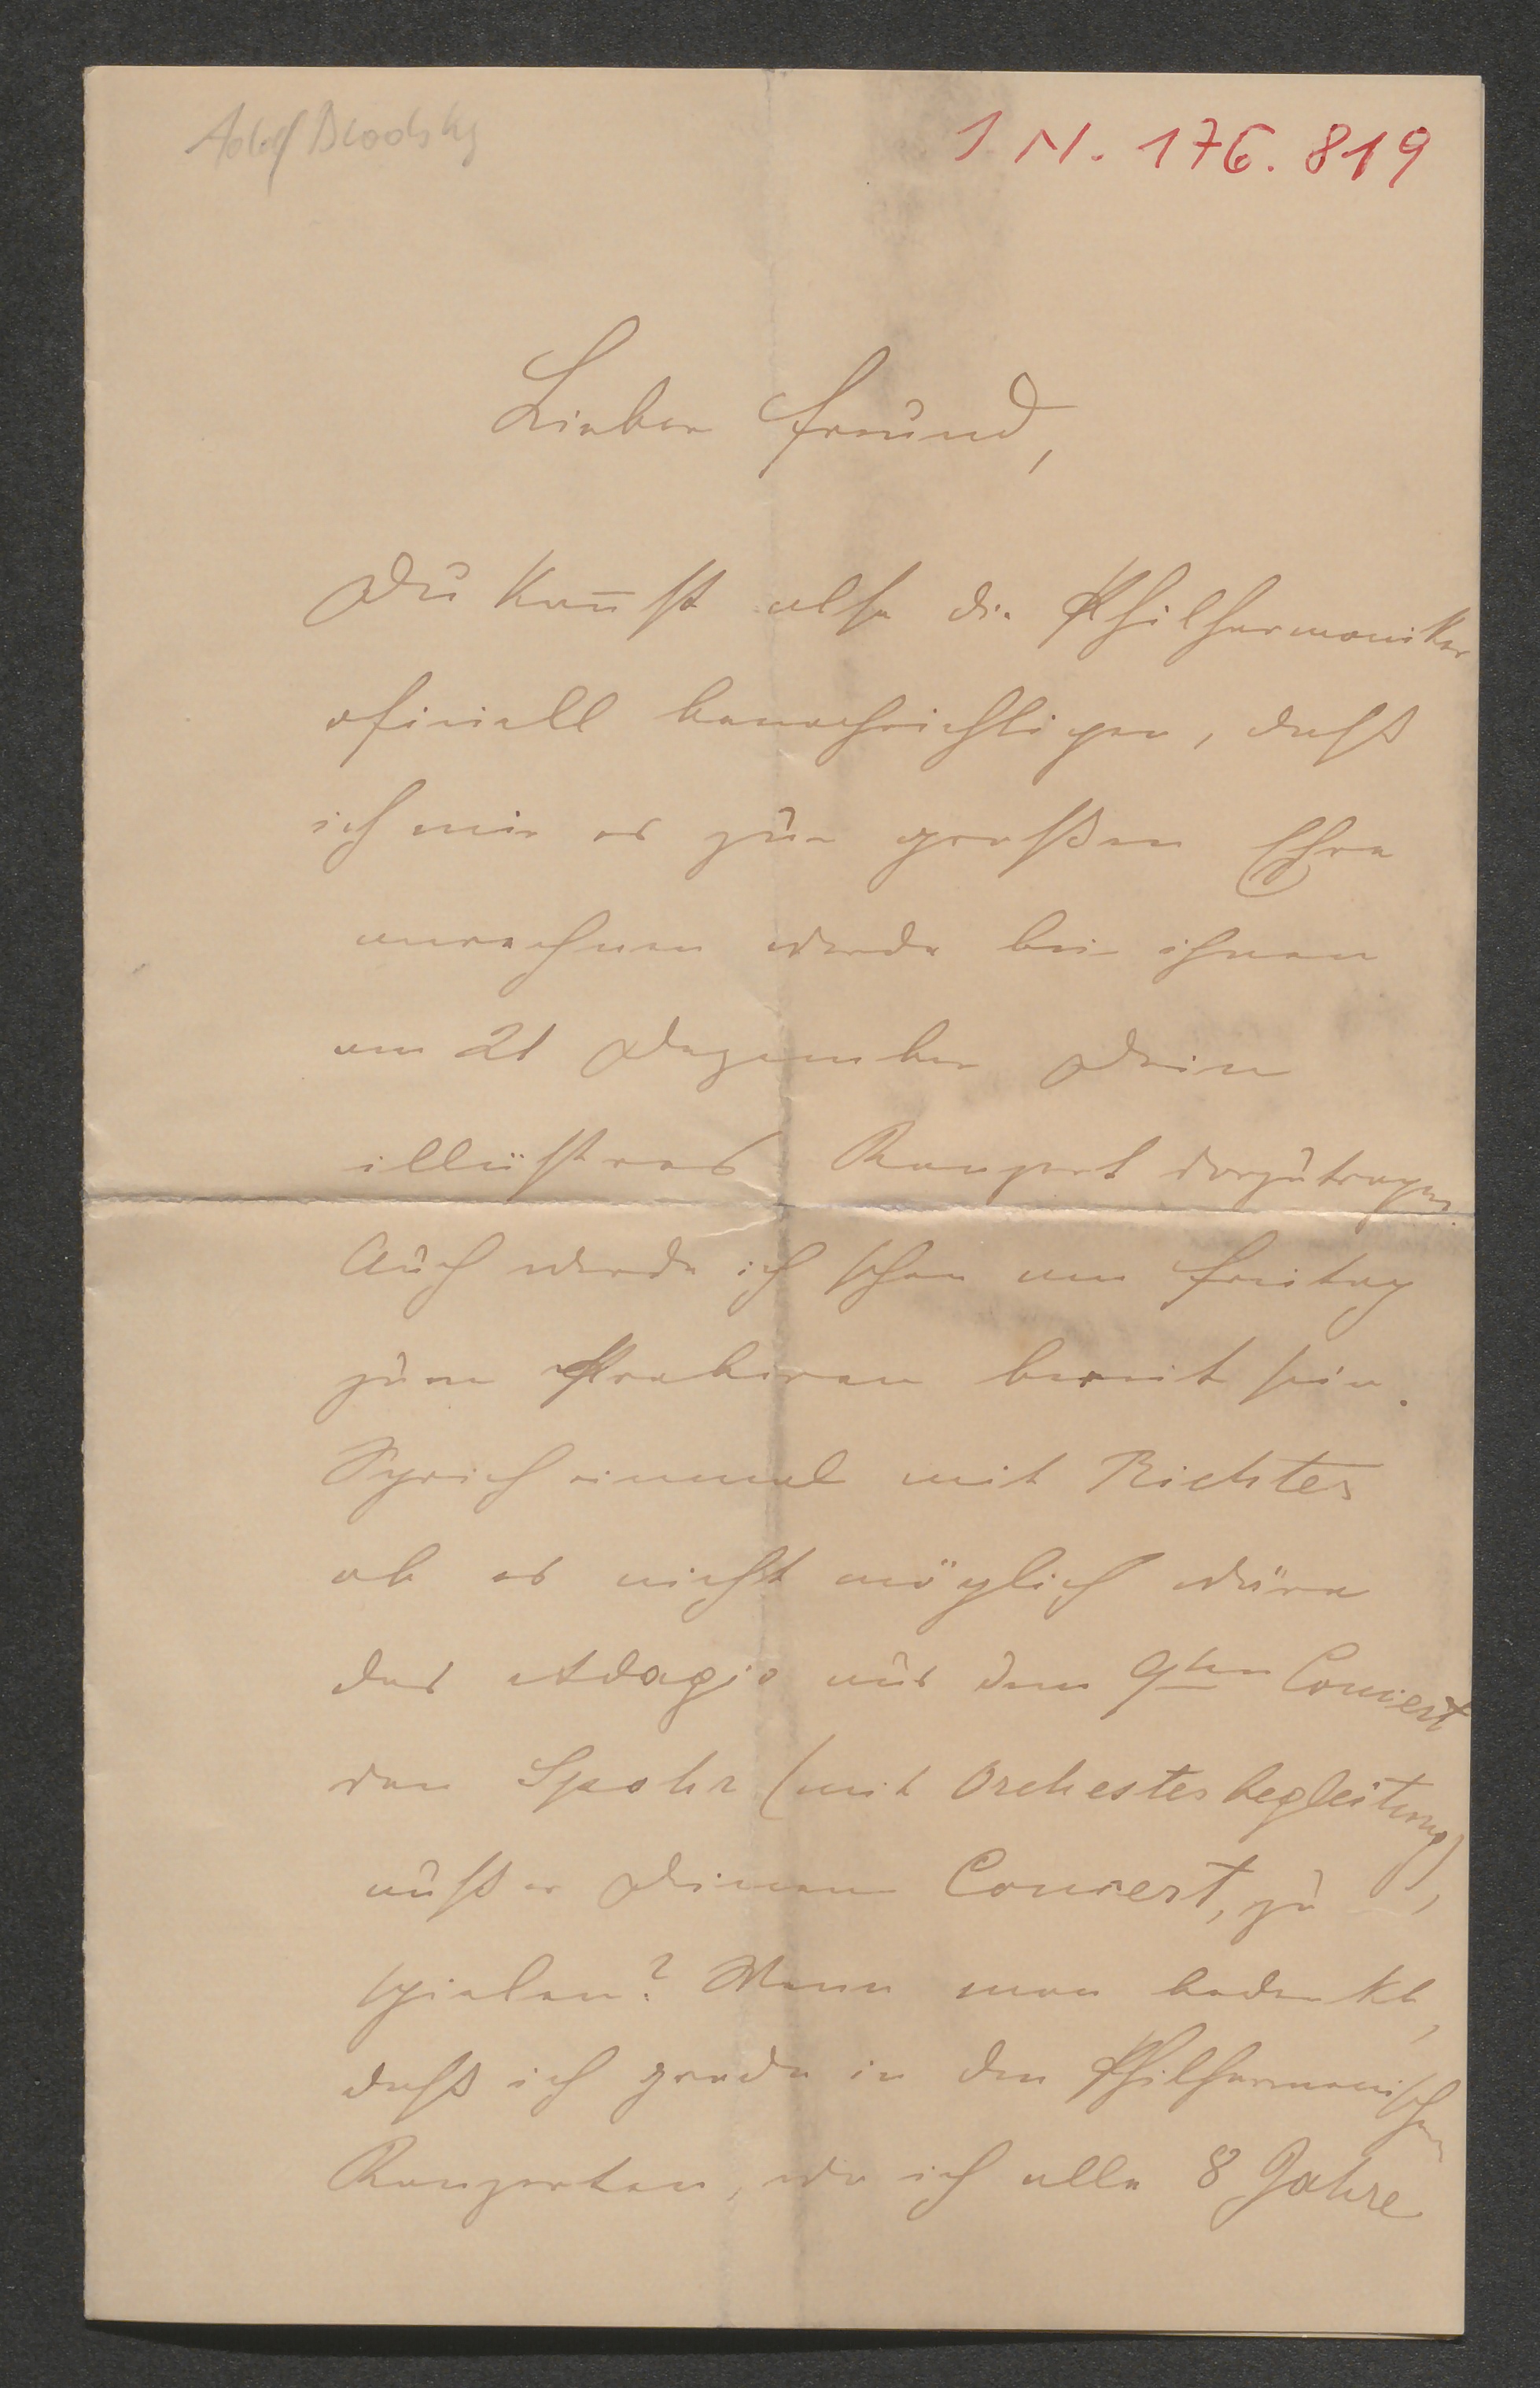 Adolf Brodsky
I N. 176.819
Lieber Freund,
Du kan̄st also die Philharmoniker
ofiziell benachrichtigen, dass
ich mir es zur großen Ehre
anrechnen werde bei ihnen
am 21 Dezember Dein
illüstres Konzert vorzutragen.
Auch werde ich schon am Freitag
zum Probiren bereit sein.
Sprich einmal mit Richter
ob es nicht möglich wäre
das Adagio aus dem 9ten Concert
von Spohr (mit Orchesterbegleitung),
außer Deinem Concert, zu
spielen? Wenn man bedenkt,
daß ich grade in den Philharmonischen
Konzerten, wo ich alle 8 Jahre